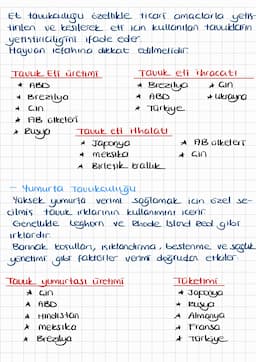 Et tavukculuğu özellikle ticari amaçlarla yetiş-
tirilen ve kesilecek eti için kullanılan tavukların
yetiştiriciliğini ifade eder.
Hayvan refahına dikkat edilmelidir.
Tavuk Eti üretimi
★ ABD
★ Brezilya
★ Çin
★ AB ülkeleri
★ Rusya
Tavuk eti ihracatı
★ Brezilya
★ ABD
★ Türkiye
★ Çin
★ Ukrayna
Tavuk eti ithalatı
★ Japonya
★ Meksika
★ Birleşik Krallık
★ AB ülkeleri
★ Çin
- Yumurta Tavukculuğu
Yüksek yumurta verimi sağlamak için özel se-
çilmiş tavuk ırklarının kullanımını içerir.
Genellikle Leghorn ve Rhode Island Red gibi
ırklardır.
Barınak koşulları, ışıklandırma, beslenme ve sağlık
yönetimi gibi faktörler verimi doğrudan etkiler.
Tavuk yumurtası üretimi
★ Çin
★ ABD
★ Hindistan
★ Meksika
★ Brezilya
Tüketimi
★ Japonya
★ Rusya
★ Almanya
★ Fransa
★ Türkiye